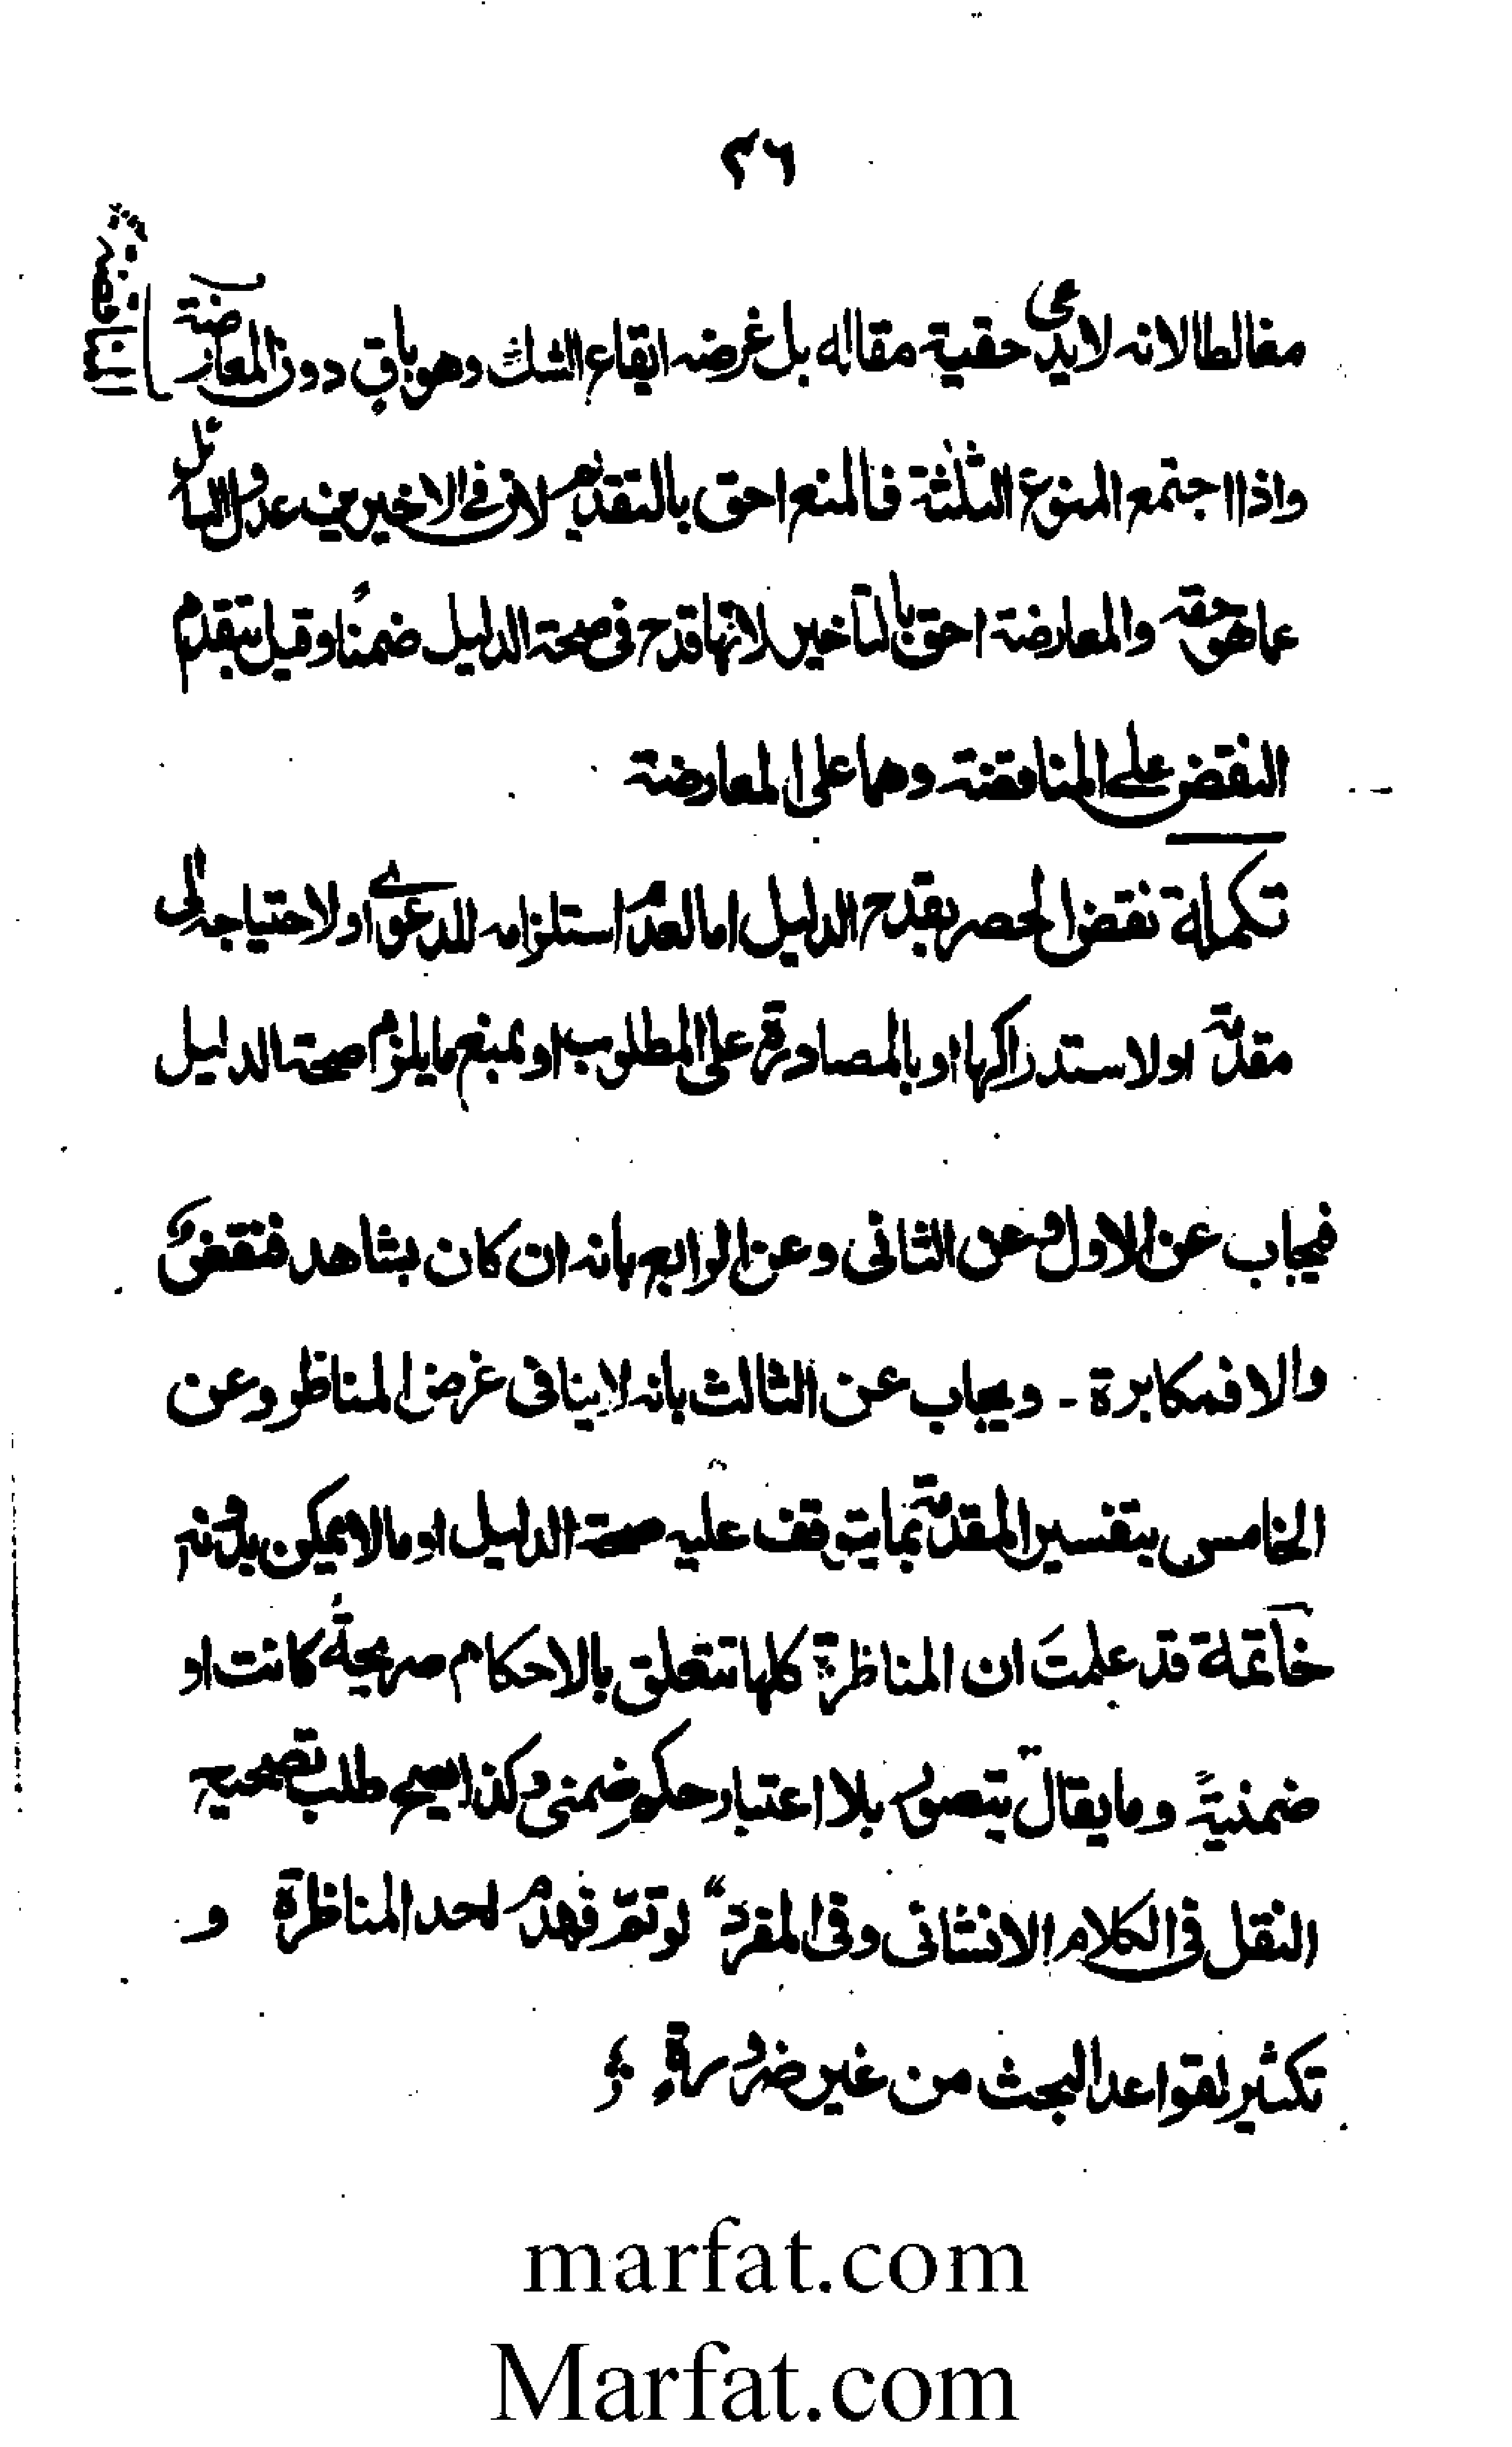 ٣٦
مغالطا لانه لا يدعى حقية مقاله بل غرضه ابقاء الشك وهو باق دون المعارضة
المناقضة
واذا اجتمع المنوع الثلثة فالمنع احق بالتقديم لان فى الاخيرين عدول السائل
عما هو حقه والمعارضة احق بالتاخير لانها قدح فى صحة الدليل ضمنًا وقيل يتقدم
النقض على المناقضة وهما على المعارضة
تكملة نقض الحصر بقدح الدليل اما لعدم استلزامه للدعوى او لاحتياجه الى
مقدمة او لاستدراكها او بالمصادرة على المطلوب او بمنع ما يلزم صحة الدليل
فيجاب عن الاول وعن الثانى وعن الرابع بانه ان كان بشاهد فنقض
والا فمكابرة - ويجاب عن الثالث بانه لا ينافى غرض المناظر وعن
الخامس بتفسير المقدمة بما يتوقف عليه صحة الدليل او ما لا يمكن بدونه
خاتمة قد علمتَ ان المناظرة كلها تتعلق بالاحكام صريحةً كانت او
ضمنيةً وما يقال يتصور بلا اعتبار حكم ضمنى وكذا يصح طلب تصحيح
النقل فى الكلام الانشائى وفى المفرد" لو تمّ فهدم لحد المناظرة و
تكثير لقواعد البحث من غير ضرورةٍ
marfat.com
Marfat.com